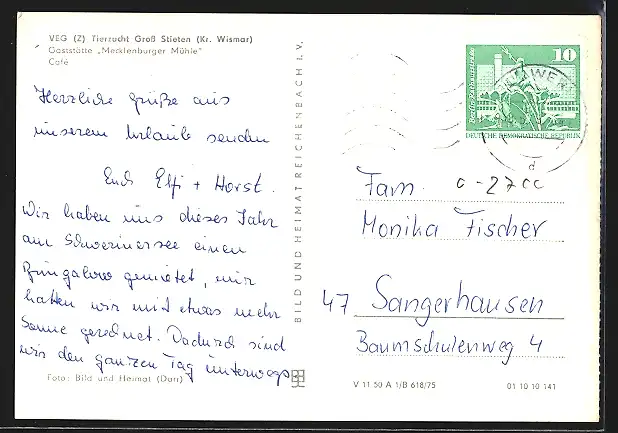 VEG (Z) Tierzucht Groß Stieten (Kr. Wismar)
Gaststätte „Mecklenburger Mühle"
Café
Herzliche grüße aus
unserem Urlaub senden
Euch Elfi + Horst.
Wir haben uns dieses Jahr
am Schwerinersee einen
Bungalow gemietet, nur
hatten wir mit etwas mehr
Sonne gerechnet. Dadurch sind
wir den ganzen Tag unterwegs
Foto: Bild und Heimat (Darr)
BILD UND HEIMAT REICHENBACH I. V.
10
DEUTSCHE DEMOKRATISCHE REPUBLIK
d
Fam. c-27cc
Monika Fischer
47 Sangerhausen
Baumschulenweg 4
V 11 50 A 1/B 618/75
01 10 10 141